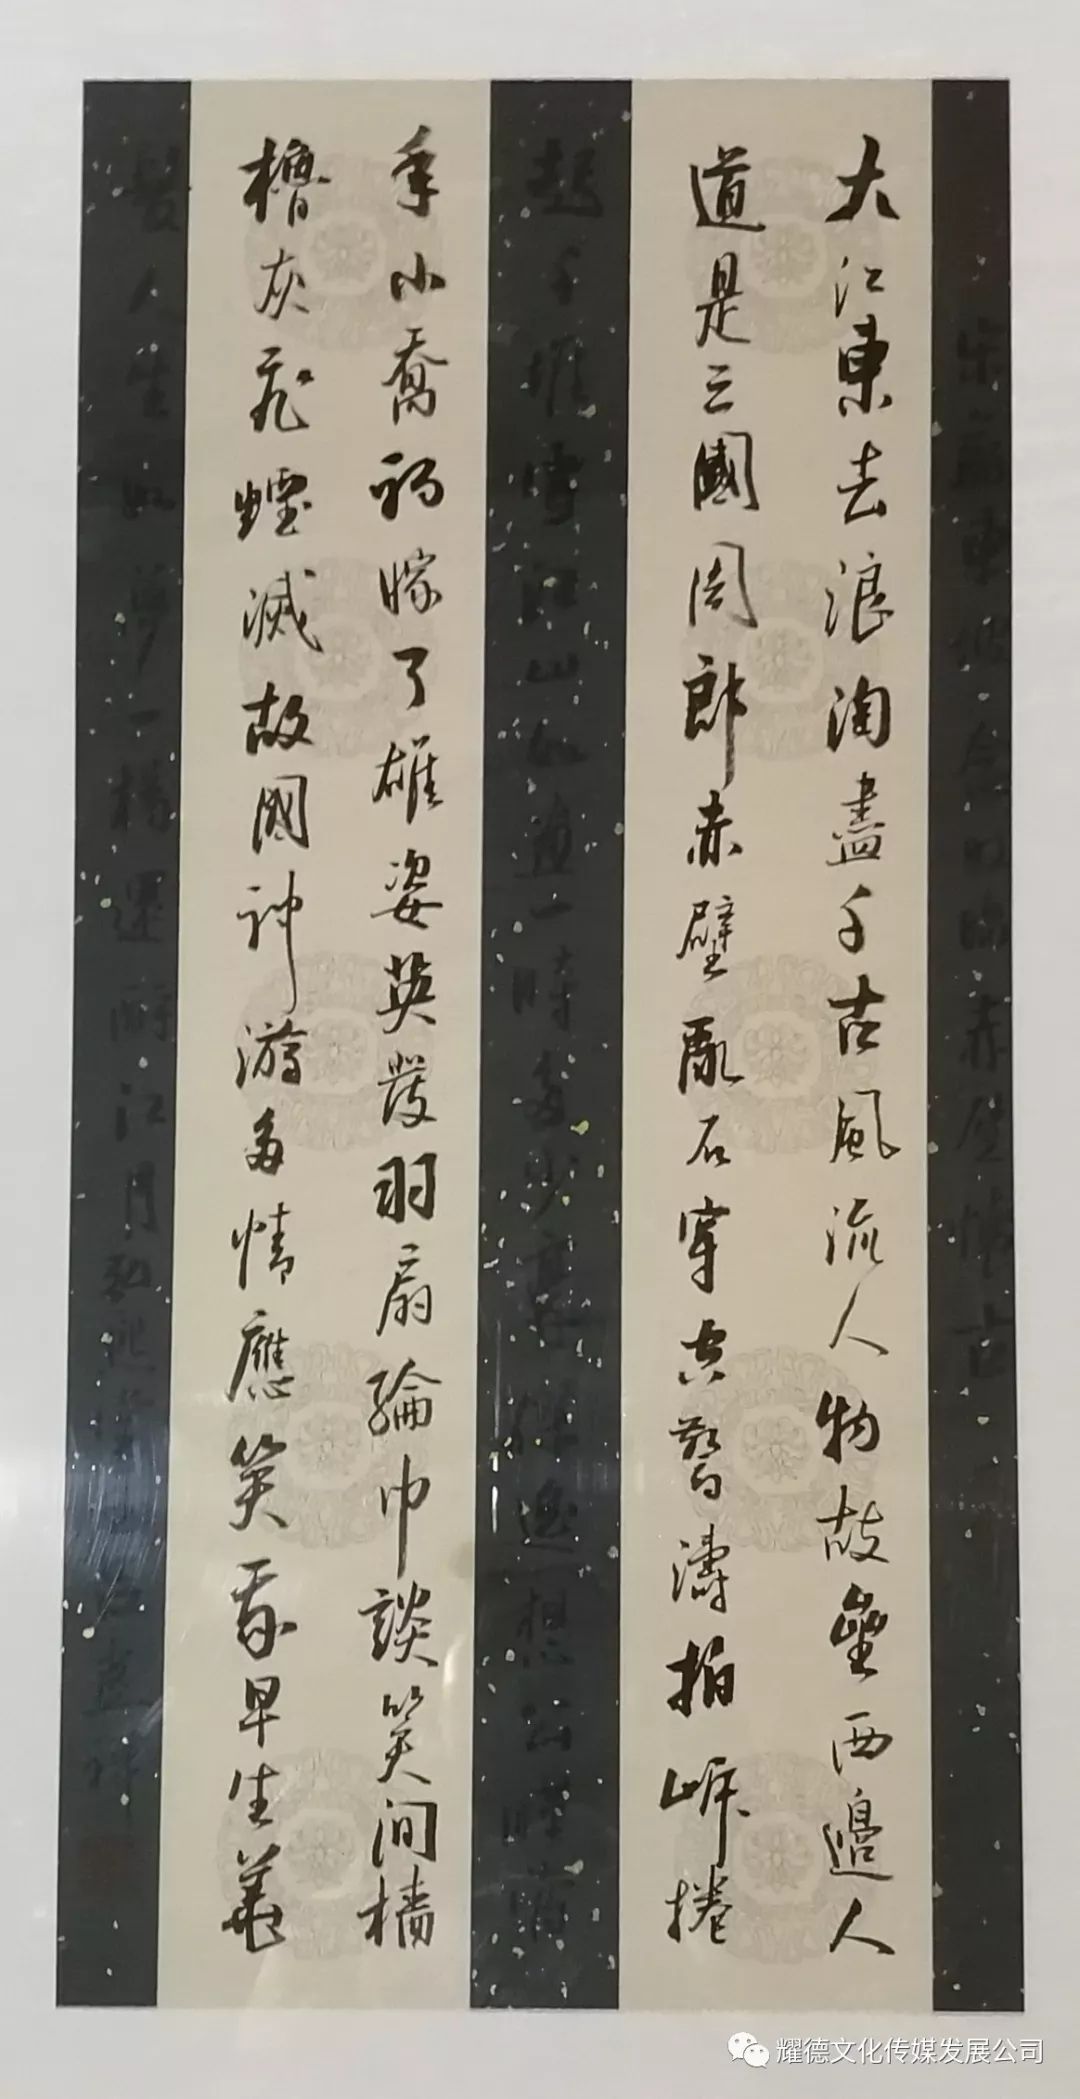 宋蘇東坡念奴嬌赤壁懷古
大江東去浪淘盡千古風流人物故壘西邊人
道是三國周郎赤壁亂石穿空驚濤拍岍捲
起千堆雪江山如畫一時多少豪傑遙想公瑾當
年小喬初嫁了雄姿英發羽扇綸巾談笑間檣
櫓灰飛煙滅故國神游多情應笑我早生華
髮人生如夢一樽還酹江月
耀德文化传媒发展公司